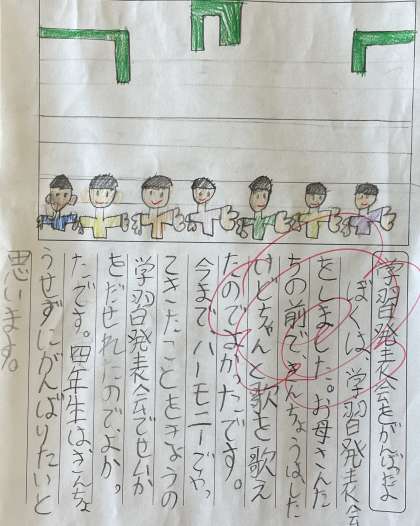 学習発表会をがんばたよ
ぼくは、学習発表会
をしました。お母さんた
ちの前で、きんちょうはした
けどちゃんと歌を歌え
たのでよかったです。
今までハーモニーでやっ
てきたことをきょうの
学習発表会でせいか
をだせれたので、よかっ
たです。四年生は、きんちょ
うせずにがんばりたいと
思います。